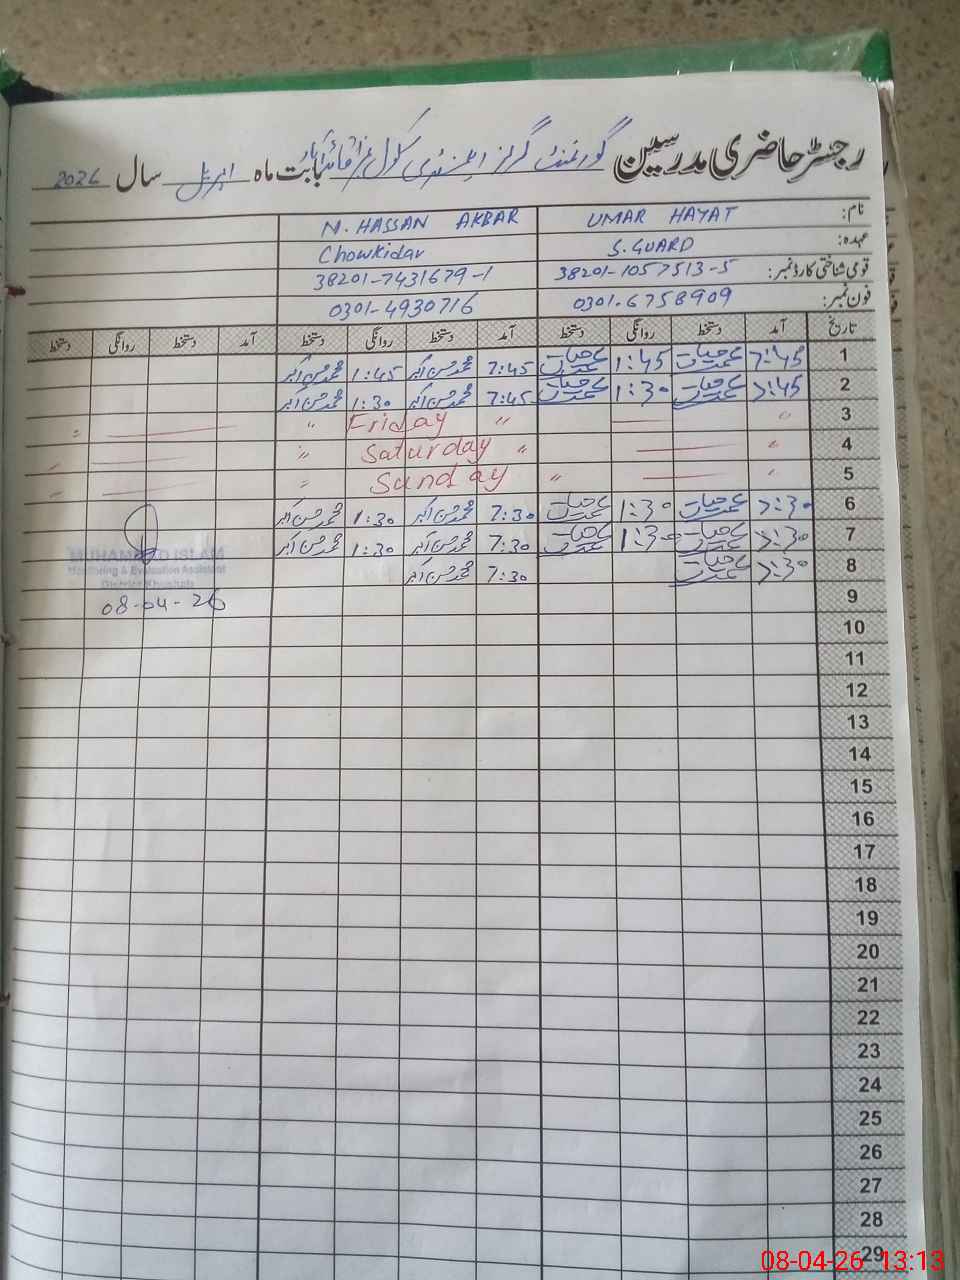 رجسٹر حاضری مدرسین گورنمنٹ گرلز ایلیمنٹری سکول بابت ماہ اپریل سال 2026
نام: UMAR HAYAT M. HASSAN AKBAR
عہدہ: S. GUARD Chowkidar
قومی شناختی کارڈ نمبر: 38201-1057513-5 38201-7431679-1
فون نمبر: 0301-6758909 0301-4930716
تاریخ آمد دستخط روانگی دستخط آمد دستخط روانگی دستخط آمد دستخط روانگی دستخط
1 7:45 عمر حیات 1:45 عمر حیات 7:45 محمد حسن اکبر 1:45 محمد حسن اکبر
2 7:45 عمر حیات 1:30 عمر حیات 7:45 محمد حسن اکبر 1:30 محمد حسن اکبر
3 " — " Friday " — "
4 " — " Saturday " — "
5 " — " Sunday " — "
6 7:30 عمر حیات 1:30 عمر حیات 7:30 محمد حسن اکبر 1:30 محمد حسن اکبر
7 7:30 عمر حیات 1:30 عمر حیات 7:30 محمد حسن اکبر 1:30 محمد حسن اکبر
8 7:30 عمر حیات 7:30 محمد حسن اکبر
MUHAMMAD ISLAM
Monitoring & Evaluation Assistant
District Khushab
9 08-04-26
10
11
12
13
14
15
16
17
18
19
20
21
22
23
24
25
26
27
28
29
08-04-26 13:13